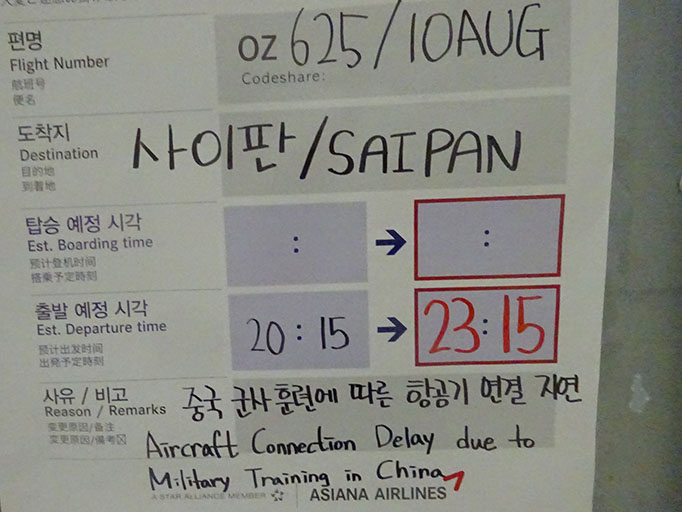 편명
Flight Number
航班号
便名
OZ 625/10AUG
Codeshare:
도착지
Destination
目的地
到着地
사이판/SAIPAN
탑승 예정 시각
Est. Boarding time
预计登机时间
搭乗予定時刻
: → :
출발 예정 시각
Est. Departure time
预计出发时间
出発予定時刻
20:15 → 23:15
사유 / 비고
Reason / Remarks
变更原因/备注
変更原因/備考
중국 군사훈련에 따른 항공기 연결 지연
Aircraft Connection Delay due to
Military Training in China
A STAR ALLIANCE MEMBER
ASIANA AIRLINES